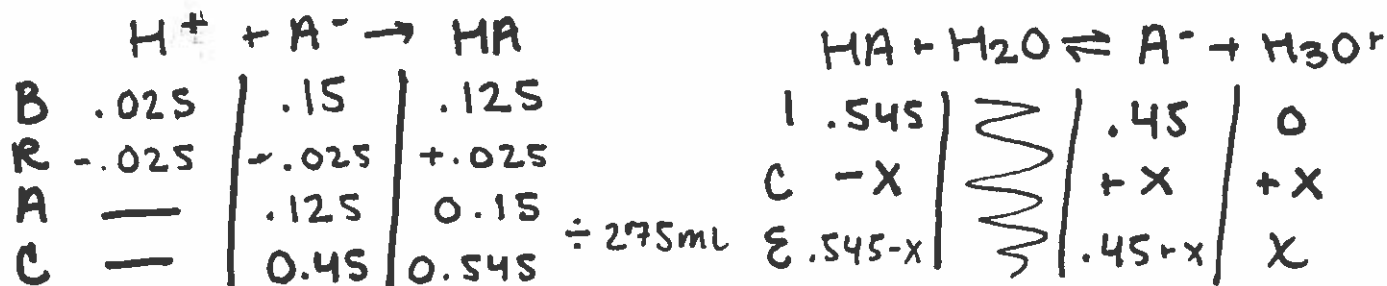 H⁺ + A⁻ → HA
B .025 | .15 | .125
R -.025 | -.025 | +.025
A — | .125 | 0.15
C — | 0.45 | 0.545
÷ 275mL
HA + H₂O ⇌ A⁻ + H₃O⁺
I .545 | | .45 | 0
C -X | | +X | +X
E .545-x | | .45+x | X